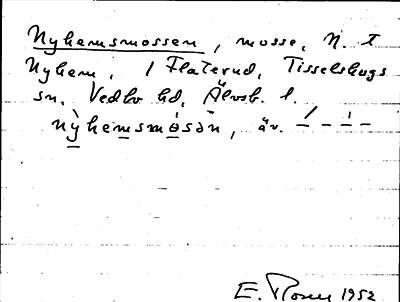 Nyhemsmossen, mosse, N. I
Nyhem, / Flaterud, Tisselskogs
sn. Vedbo hd, Älvsb. l.
nỳhemsmosən, äv. – – – –
E. Rosen 1952